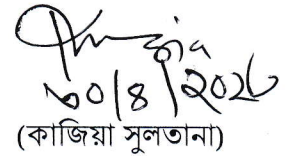 ৩০/৪/২০২৮
(কাজিয়া সুলতানা)